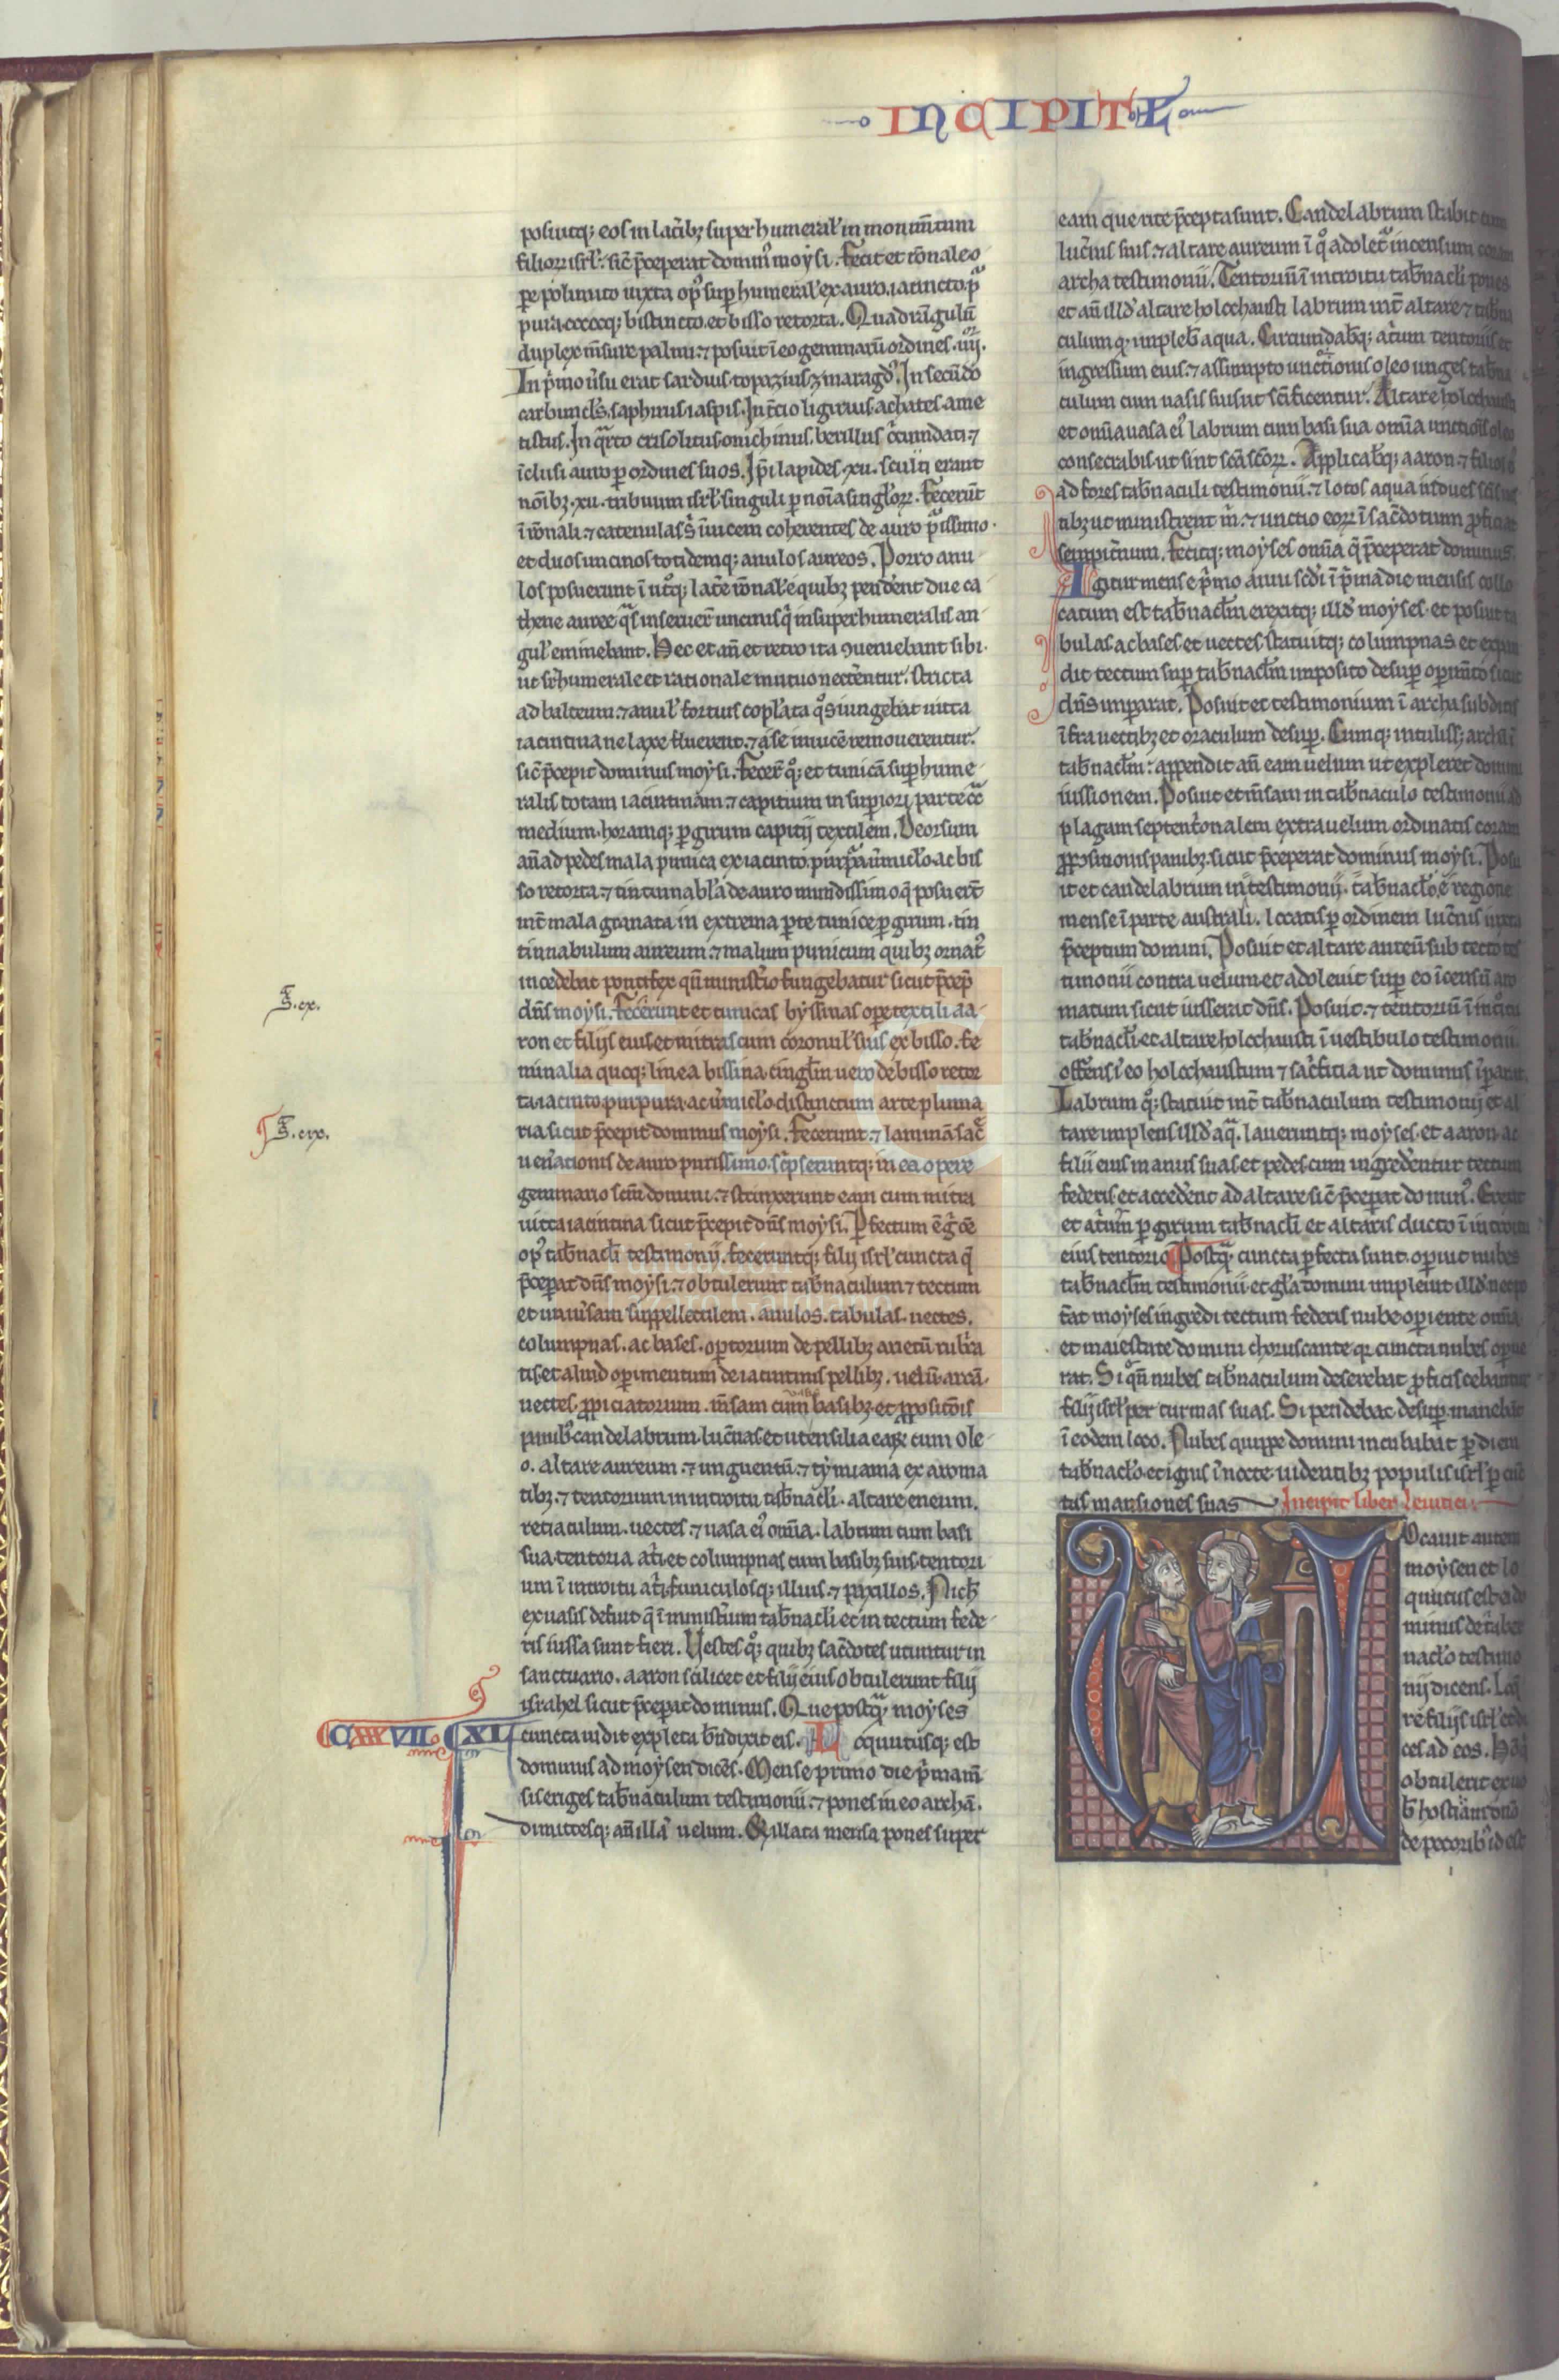 INCIPIT L
posuitq; eos in lat̄ibʒ superhumeral' in monim̄tum
filior isrl'. sic̄ p̄ceperat domin' moysi. fecit et ro̅nale o
pe polimito iuxta op' suphumeral' ex auro. iacincto. p
pura coccoq; bistincto. et bisso retorta. Quadrāgulū
duplex m̄sure palmi. ⁊ posuit ī eo gemmarū ordines .iiij.
In p̄mo u̇su erat sardius. topazius. zmaragd'. In secūdo
carbuncl's. saphirus. iaspis. In t̄cio ligirius. achates. ame
tistus. In q̄rto crisolitus. onichinus. berillus c̄cundati. ⁊
īclusi auro p ordines suos. Ip̄i lapides .xii. sculpti erant
noībʒ .xii. tribuum isrl' singuli p noīa singl'orꝝ. fecerūt
ī ro̅nali. ⁊ catenulas s̄ īuicem coherentes de auro p̄issimo.
et duos uncinos totidemq; anulos aureos. Porro anu
los posuerunt ī utq; lat̄e ro̅nal'e quibʒ pend̄ent due ca
thene auree q̄s inseruer̄ uncinis q̄ in superhumeralis an
gul' eminebant. Hec et an̄ et retro ita ꝯueniebant sibi.
ut sr̄humerale et rationale mutuo nect̄entur. stricta
ad balteum. ⁊ anul' fortius cop̄lata q̄s iungebat uitta
iacintina ne laxe fluerent. ⁊ a se inuicē remouerentur.
sic̄ p̄cepit dominus moysi. fecer̄ q̊; et tunicā suphume
ralis totam iacintinam. ⁊ capitium in supiori parte ɔ̄
medium. horamq; p girum capitij textilem. Deorsum
an̄ ad pedes mala punica ex iacinto. purp̄a. u̇miclo. ac bis
so retorta. ⁊ tintinnabl'a de auro mundissimo. q̄ posuer̄t
int̄ mala granata in extrema pte tunice p girum. tin
tinnabulum aureum. ⁊ malum punicum quibʒ ornat'
incedebat pontifex qn̄ minist̄io fungebatur sicut p̄cep̄
dn̄s moysi. fecerunt et tunicas byssinas ope textili aa
ron et filijs eius et mitras cum coronul' suis ex bisso. fe
minalia quoq; linea bissina. cingl̄m uero de bisso retor
ta iacinto. purpura. ac u̇miclo. distinctum arte pluma
ria sicut p̄cepit dominus moysi. fecerunt. ⁊ laminā sac̄
uen̄ationis de auro purissimo. sc̄pseruntq; in ea opere
gemmario sc̄m domini. ⁊ strinxerunt eam cum mitra
uitta iacintina sicut p̄cepit dn̄s moysi. Pfectum ē g̊ o̅e
op' tab̄nacl̄i testimonij. feceruntq; filij isrl' cuncta q̄
p̄ceperat dn̄s moysi. ⁊ obtulerunt tab̄naculum ⁊ tectum
et uniu̇sam suppellectilem. anulos. tabulas. uectes.
columpnas. ac bases. optorium de pellibʒ arietū rubr̄a
tis. et aliud opimentum de iacintinis pellibʒ. uelū. arcā.
uectes. ꝓpiciatorium. m̄sam cum basibʒ. et ꝓpositōis
panib' candelabrum. luc̄nas. et utensilia eaꝝ cum ole
o. altare aureum. ⁊ unguentū. ⁊ tymiama ex aroma
tibʒ. ⁊ tentorium in introitu tab̄nacl̄i. altare eneum.
retiaculum. uectes. ⁊ uasa ei' om̄ia. labrum cum basi
sua. tentoria at̄i. et columpnas cum basibʒ suis. tentori
um ī introitu at̄i. funiculosq; illius. ⁊ paxillos. Nich'
ex uasis defuit q̄ ī minist̄ium tab̄nacl̄i et in tectum fede
ris iussa sunt fieri. Vestes q̊; quibʒ sac̄dotes utuntur in
sanctuario. aaron scilicet et filij eius obtulerunt filij
israhel sicut p̄ceperat dominus. Que postq̄ moyses
cuncta uidit expleta b̄ndixit eis. L oquutusq; est
CXXXVII. CXL
dominus ad moysen dicēs. Mense primo die p̄ma m̄
sis eriges tab̄naculum testimonii. ⁊ pones in eo archā.
dimittesq; an̄ illā uelum. Et illata mensa pones super
eam que rite p̄cepta sunt. Candelabrum stabit cum
luc̄nis suis. ⁊ altare aureum ī q̊ adolet̄ incensum coram
archa testimonii. Tentoriū ī introitu tab̄nacl̄i pones
et an̄ illd' altare holochausti labrum int̄ altare ⁊ tab̄na
culum q. impleb' aqua. Circumdab'q; at̄ium tentoriis et
ingressum eius. ⁊ assumpto unctionis oleo unges tab̄na
culum cum uasis suis ut sc̄ificentur. Altare holochausti
et om̄ia uasa ei' labrum cum basi sua om̄ia unctiōis oleo
consecrabis ut sint sc̄a sc̄orꝝ. Applicab'q; aaron. ⁊ filios ei'
ad fores tab̄naculi testimonii. ⁊ lotos aqua indues sc̄is ues
tibʒ ut ministrent m̄. ⁊ unctio eorꝝ ī sac̄dotium ꝓficiat
sempit̄num. fecitq; moyses om̄ia q̄ p̄ceperat dominus.
Igitur mense p̄mo anni sc̄di ī p̄ma die mensis collo
catum est tab̄nacl̄m. erexitq; illd' moyses. et posuit ta
bulas ac bases et uectes. statuitq; columpnas et expan
dit tectum sup tab̄nacl̄m imposito desup opim̄to sicut
dn̄s impararat. Posuit et testimonium ī archa subditis
īfra uectibʒ et oraculum desup. Cumq; intuliss; archā ī
tab̄nacl̄m: appendit an̄ eam uelum ut expleret domini
iussionem. Posuit et m̄sam in tab̄naculo testimonii ad
plagam septent̄onalem extra uelum ordinatis coram
ꝓpositionis panibʒ. sicut p̄ceperat dominus moysi. Posu
it et candelabrum in testimonij. tab̄naclo. e regione
mense ī parte australi. locatis p ordinem luc̄nis iuxta
p̄ceptum domini. Posuit et altare aureū sub tecto tes
timonii contra uelum. et adoleuit sup eo īcensū aro
matum sicut iusserat dn̄s. Posuit. ⁊ tentoriū ī introitu
tab̄nacl̄i. et altare holochausti ī uestibulo testimonii.
offerens ī eo holochaustum ⁊ sac̄ficia ut dominus īparat.
Labrum q̊; statuit int̄ tab̄naculum testimonij et al
tare implens illd' aq̄. laueruntq; moyses. et aaron. ac
filii eius manus suas et pedes cum ingred̄entur tectum
federis. et acced̄ent ad altare sic̄ p̄ceperat domin'. Erexit
et at̄ium p girum tab̄nacl̄i et altaris ducto ī introitu
eius tentorio. Postq̄ cuncta pfecta sunt. opuit nubes
tab̄nacl̄m testimonii. et gl̄a domini impleuit illd'. nec po
t̄at moyses ingredi tectum federis nube opiente om̄ia
et maiestate domini choruscante. qr cuncta nubes opue
rat. Siq̄n nubes tab̄naculum deserebat ꝓficiscebantur
filij isrl' per turmas suas. Si pendebat desup. manebāt
ī eodem loco. Nubes quippe domini incubabat p diem
tab̄naclo. et ignis ī nocte uidentibʒ populis isrl' p cūc
tas mansiones suas Incipit liber leuitici.
Vocauit autem
moysen et lo
quutus est ei do
minus de taber
naclo testimo
nij dicens. Loq̄
re filijs isrl' et di
ces ad eos. Hō q̄
obtulerit ex uo
b' hostiam dn̄o
de pecorib' id est